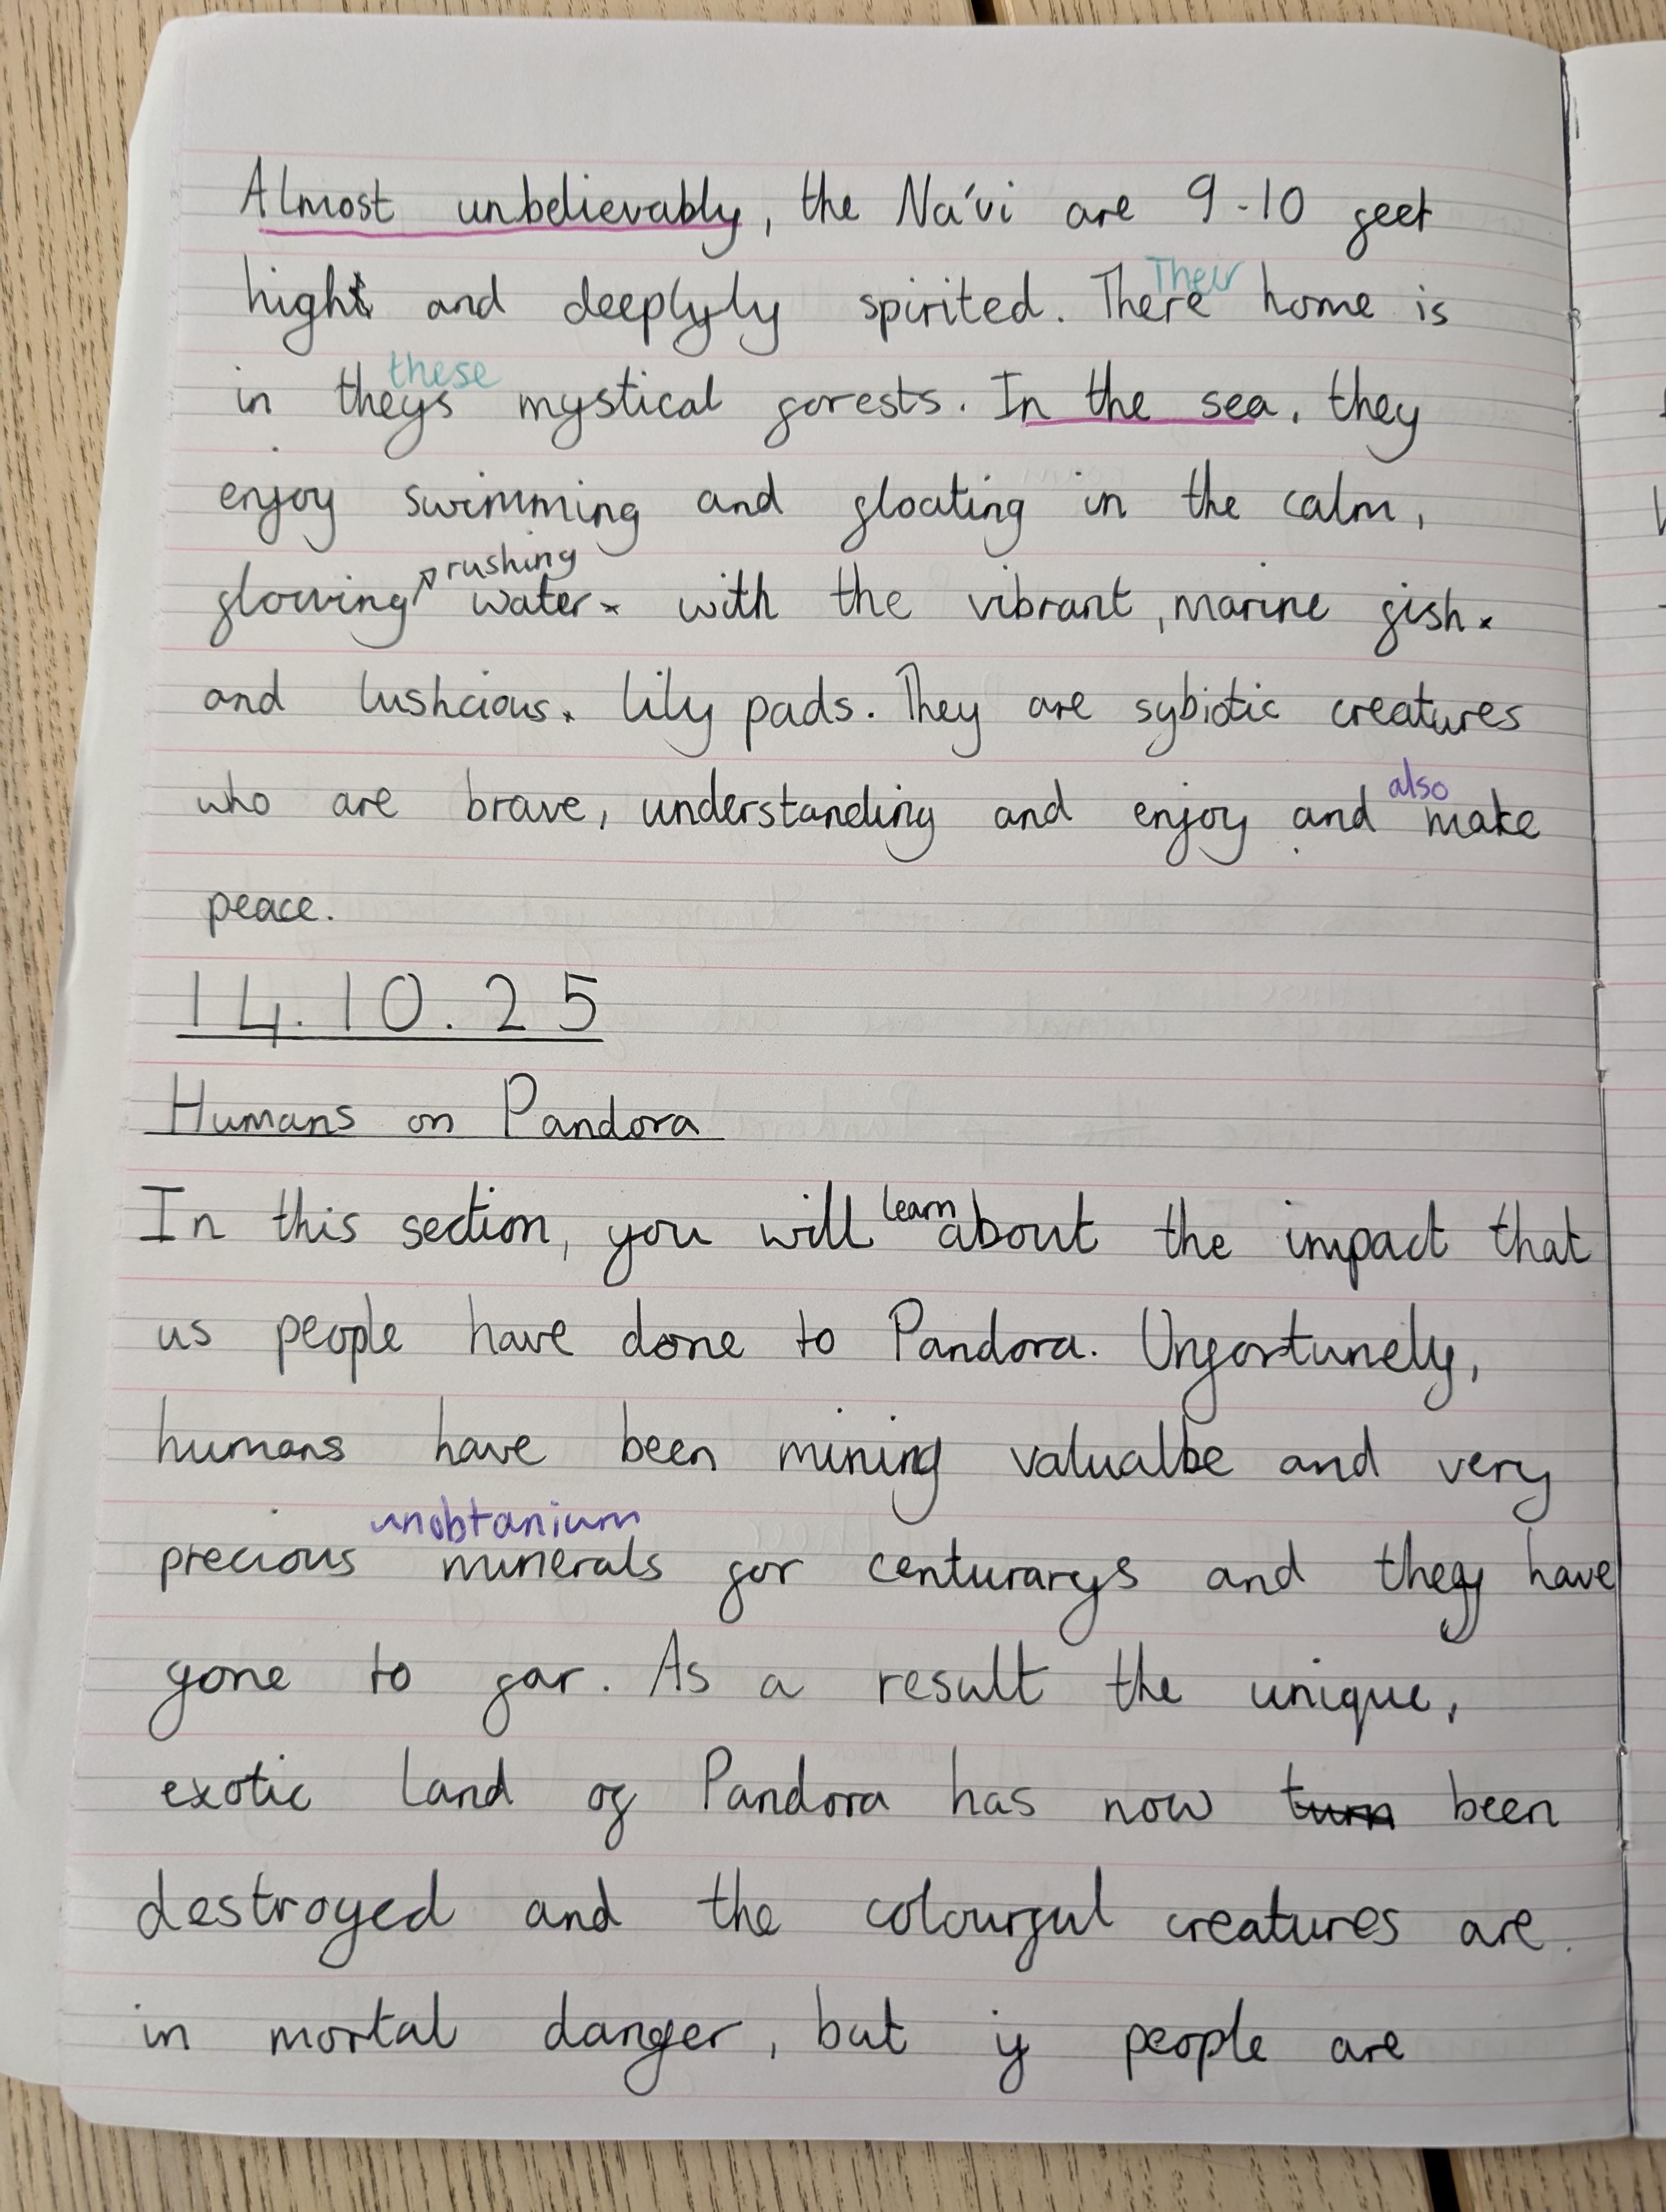 Almost unbelievably, the Na'vi are 9-10 feet
hight and deeplyly spirited. There Their home is
in theys these mystical forests. In the sea, they
enjoy swimming and floating in the calm,
rushing
glowing water. with the vibrant, marine fish.
and lushcious. lily pads. They are sybiotic creatures
also
who are brave, understanding and enjoy and make
peace.
14.10.25
Humans on Pandora
In this section, you will learn about the impact that
us people have done to Pandora. Unfortunely,
humans have been mining valualbe and very
unobtanium
precious minerals for centurarys and they have
gone to far. As a result the unique,
exotic land of Pandora has now turn been
destroyed and the colourful creatures are
in mortal danger, but if people are